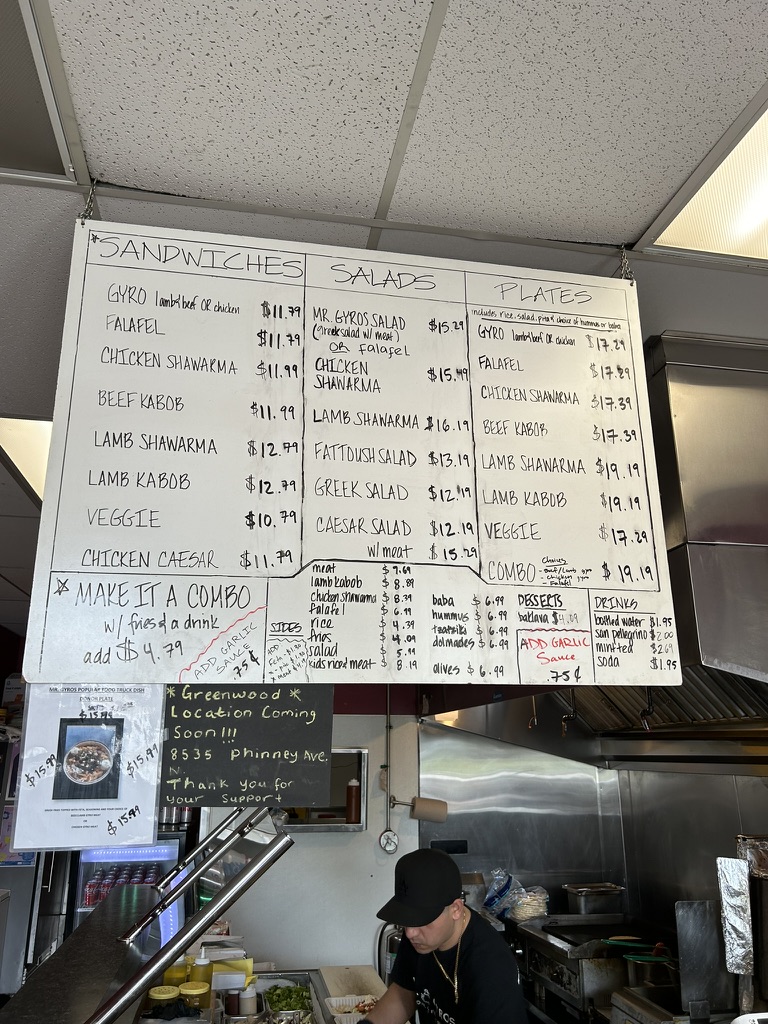 *SANDWICHES
GYRO lamb&beef OR chicken $11.79
FALAFEL $11.79
CHICKEN SHAWARMA $11.99
BEEF KABOB $11.99
LAMB SHAWARMA $12.79
LAMB KABOB $12.79
VEGGIE $10.79
CHICKEN CAESAR $11.79
* MAKE IT A COMBO
w/ fries & a drink
add $4.79
ADD GARLIC
SAUCE
.75¢
SALADS
MR. GYROS SALAD $15.29
(greek salad w/ meat)
OR falafel
CHICKEN
SHAWARMA $15.49
LAMB SHAWARMA $16.19
FATTOUSH SALAD $13.19
GREEK SALAD $12.19
CAESAR SALAD $12.19
w/ meat $15.29
PLATES
includes rice, salad, pita & choice of hummus or baba
GYRO lamb&beef OR chicken $17.29
FALAFEL $17.29
CHICKEN SHAWARMA $17.39
BEEF KABOB $17.39
LAMB SHAWARMA $19.19
LAMB KABOB $19.19
VEGGIE $17.29
COMBO $19.19
Choices
- Beef/Lamb gyro
- chicken gyro
- Falafel
SIDES
meat $7.69
lamb kabob $8.89
chicken shawarma $8.39
falafel $6.99
rice $4.39
fries $4.09
salad $5.99
kids rice & meat $8.19
baba $6.99
hummus $6.99
tzatziki $6.99
dolmades $6.99
olives $6.99
DESSERTS
baklava $4.09
ADD GARLIC
Sauce
.75¢
DRINKS
bottled water $1.95
san pellegrino $2.00
mint tea $2.69
soda $1.95
MR. GYROS POPULAR FOOD TRUCK DISH
DONER PLATE
$15.99
$15.99
$15.99
$15.99
* Greenwood *
Location Coming
Soon!!!
8535 Phinney Ave.
N.
Thank you for
your support